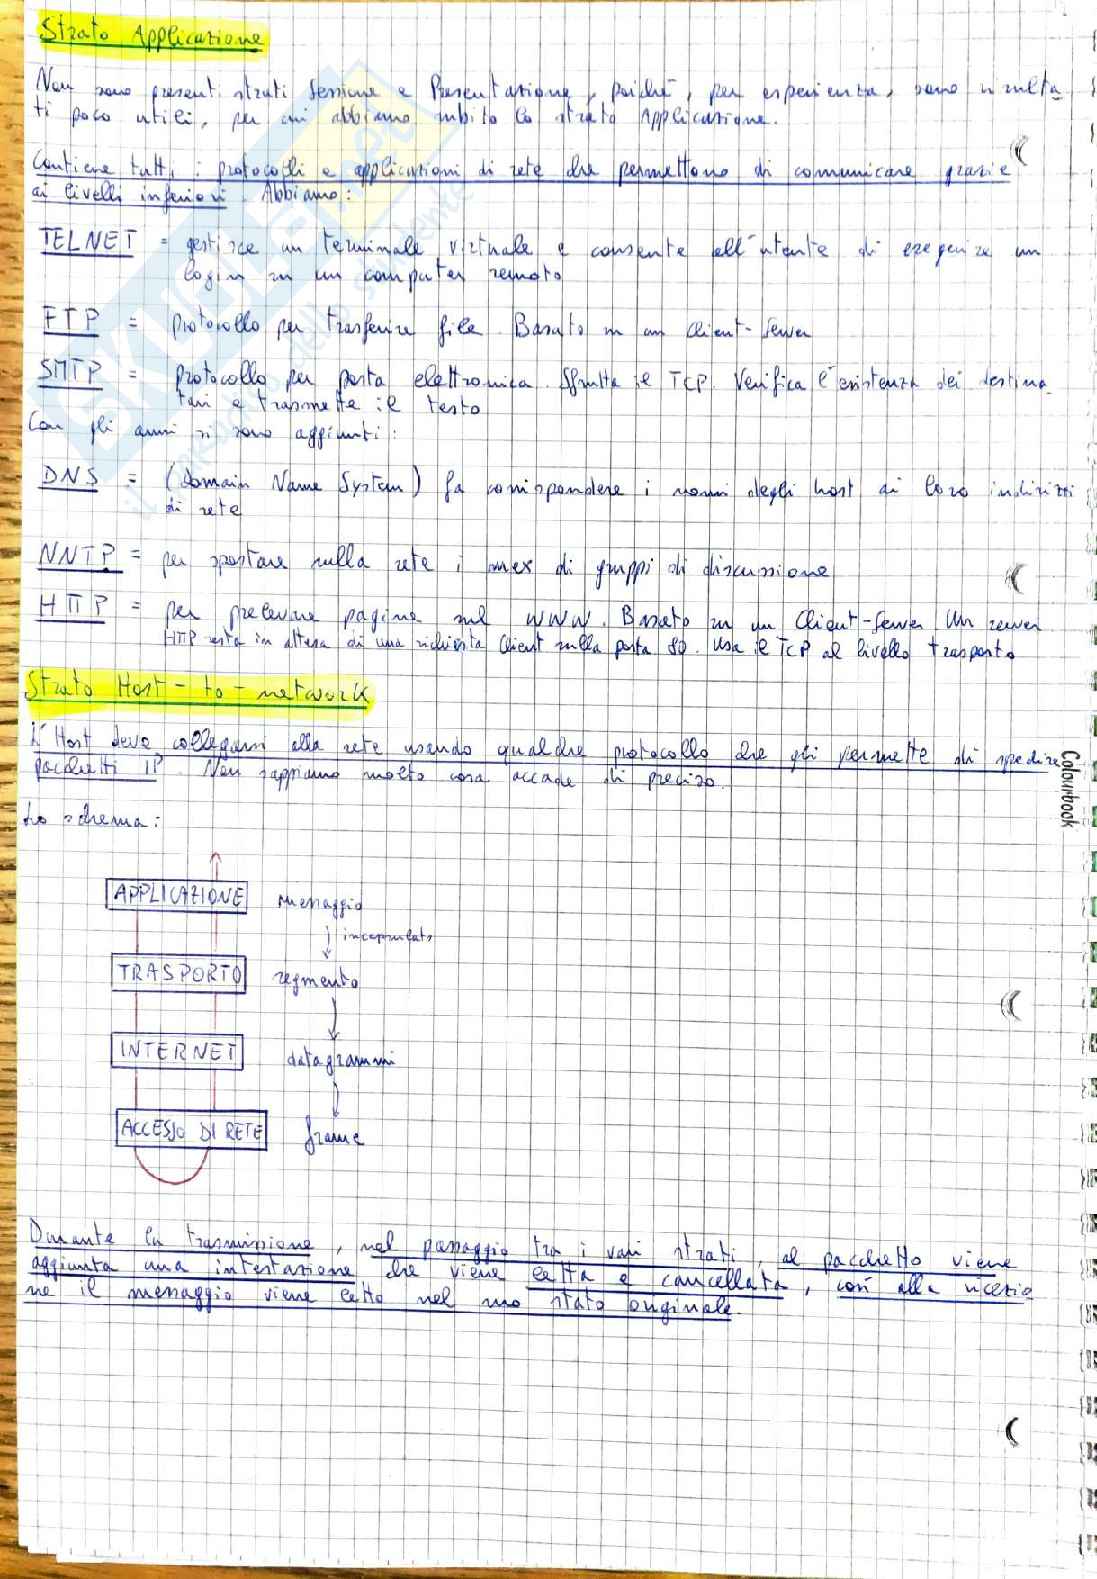 Strato Applicazione
Non sono presenti strati Sessione e Presentazione, poiché, per esperienza, sono risulta
ti poco utili, per cui abbiamo subito lo strato Applicazione.
Contiene tutti i protocolli e applicazioni di rete che permettono di comunicare grazie
ai livelli inferiori. Abbiamo:
TELNET = gestisce un terminale virtuale e consente all'utente di eseguire un
login su un computer remoto
FTP = protocollo per trasferire file. Basato su un Client-Server
SMTP = protocollo per posta elettronica. Sfrutta il TCP. Verifica l'esistenza dei destina
tari e trasmette il testo
Con gli anni si sono aggiunti:
DNS = (Domain Name System) fa corrispondere i nomi degli host ai loro indirizzi
di rete
NNTP = per spostare sulla rete i mex di gruppi di discussione
HTTP = per prelevare pagine sul WWW. Basato su un Client-Server. Un server
HTTP resta in attesa di una richiesta Client sulla porta 80. Usa il TCP al livello trasporto
Strato Host-to-network
L'Host deve collegarsi alla rete usando qualche protocollo che gli permette di spedire
pacchetti IP. Non sappiamo molto cosa accade di preciso.
Lo schema:
APPLICAZIONE messaggio
incapsulato
TRASPORTO segmento
INTERNET datagrammi
ACCESSO DI RETE frame
Durante la trasmissione, nel passaggio tra i vari strati, al pacchetto viene
aggiunta una intestazione che viene letta e cancellata, così alla ricezio
ne il messaggio viene letto nel suo stato originale.
Colourbook